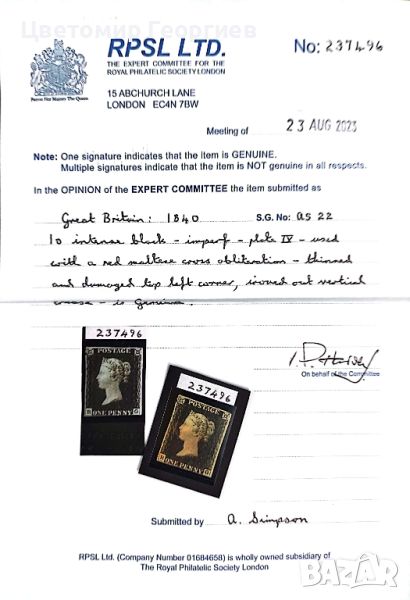 Цветомир Георгиев
RPSL LTD.
THE EXPERT COMMITTEE FOR THE
ROYAL PHILATELIC SOCIETY LONDON
No: 237496
15 ABCHURCH LANE
LONDON EC4N 7BW
Meeting of 23 AUG 2023
Note: One signature indicates that the item is GENUINE.
Multiple signatures indicate that the item is NOT genuine in all respects.
In the OPINION of the EXPERT COMMITTEE the item submitted as
Great Britain: 1840 S.G. No: AS 22
1d intense black - imperf - plate IV - used
with a red maltese cross obliteration - thinned
and damaged top left corner, ironed out vertical
crease - is Genuine.
On behalf of the Committee
237496
POSTAGE
ONE PENNY
237496
POSTAGE
ONE PENNY
Submitted by A. Simpson
RPSL Ltd. (Company Number 01684658) is wholly owned subsidiary of
The Royal Philatelic Society London
BAZAR